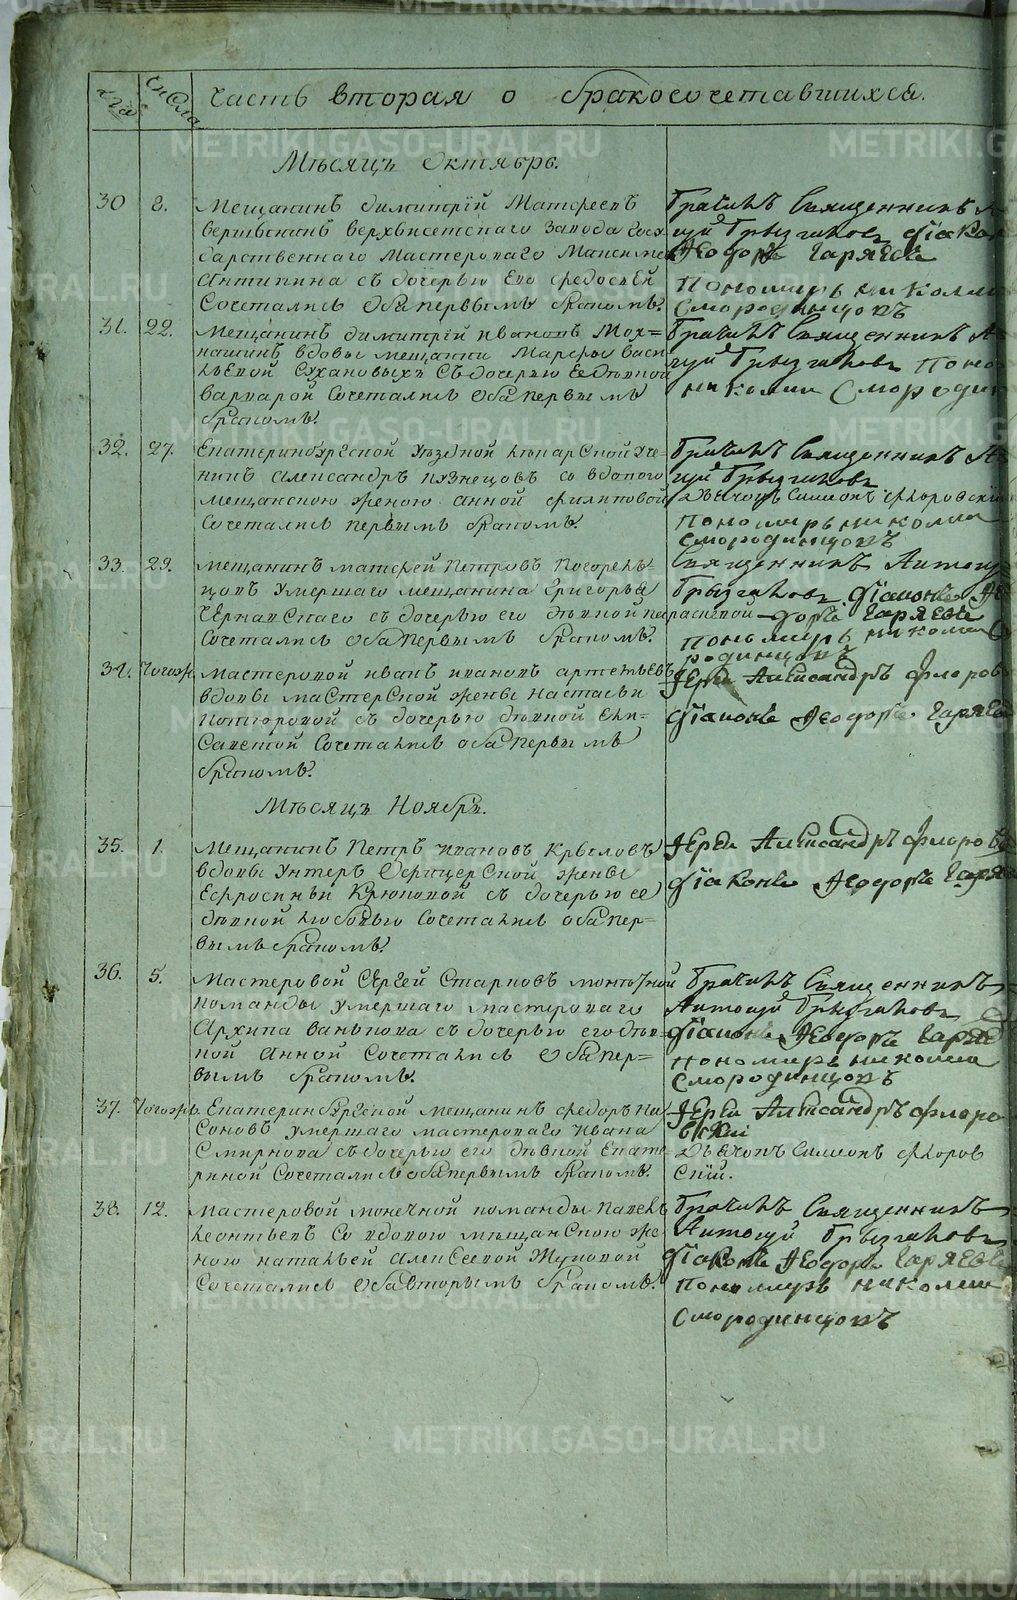 Часть вторая о бракосочетавшихся.
числа
Мѣсяцъ Октябрь.
30 8. Мещанинъ Димитрій Матфеевъ
верхъисетскаго Завода Госу
дарственнаго Мастероваго Максима
Антипина съ дочерью Его Федосьей
Сочетались Оба первымъ бракомъ.
Бракъ Священникъ
Діакон
Феодоръ Гаряевъ
Пономарь Николай
Смородинцовъ
31. 22. Мещанинъ Димитрій Ивановъ Мох=
нашинъ вдовы мещанки Марфы Васи
льевой Сухановыхъ съ дочерью Ее дѣвкой
Варварой Сочетались Оба первымъ
бракомъ.
Священникъ
Поно
Николай Смородин
32. 27. Екатеринбургской Уѣздной лѣкарской уче=
никъ Александръ Кузнецовъ со вдовою
мещанскою женою Анной Филиповой
Сочетались первымъ бракомъ.
Священникъ
Дьячокъ Симеонъ Флоровскій
Пономарь Николай
Смородинцовъ
33. 29. Мещанинъ Матфей Петровъ Погорель=
цовъ Умершаго мещанина Григорья
Чернавскаго съ дочерью его дѣвкой параскевой
Сочетались оба первымъ бракомъ.
Священникъ Антоній
Діаконъ Фе
доръ Гаряевъ
Пономарь Николай С
родинцовъ
34. Тогожъ. Мастеровой Иванъ Ивановъ Артемьевъ
вдовы мастерской жены Настасьи
съ дочерью дѣвкой Ели=
саветой Сочетались оба первымъ
бракомъ.
Іерей Александръ Флоров
Діаконъ Феодоръ Гаряевъ
Мѣсяцъ Ноябрь.
35. 1. Мещанинъ Петръ Ивановъ Крыловъ
вдовы Унтеръ Офицерской жены
Ефросиньи Крюковой съ дочерью ее
дѣвкой Любовью Сочетались оба пер=
вымъ бракомъ.
Іерей Александръ Флоров
Діаконъ Феодоръ Гаряе
36. 5. Мастеровой Сергей Старковъ монетной
команды умершаго мастероваго
Архипа Ванькова съ дочерью его дѣв=
кой Анной Сочетались Оба пер=
вымъ бракомъ.
Священникъ
Антоній
Діаконъ Феодоръ Гаряев
Пономарь Николай
Смородинцовъ
37. Тогожъ. Екатеринбургской мещанинъ Федоръ Ни
соновъ умершаго мастероваго Ивана
Смирнова съ дочерью его дѣвкой Екате
риной Сочетались оба первымъ бракомъ.
Іерей Александръ Флоро
вскій
Дьячокъ Симеонъ Флоров
скій.
38. 12. Мастеровой монетной команды Павелъ
Леонтьевъ со вдовою мещанскою же
ною Натальей Алексеевой Жуковой
Сочетались Оба вторымъ бракомъ.
Священникъ
Антоній
Діаконъ Феодоръ Гаряевъ
Пономарь Николай
Смородинцовъ
METRIKI.GASO-URAL.RU